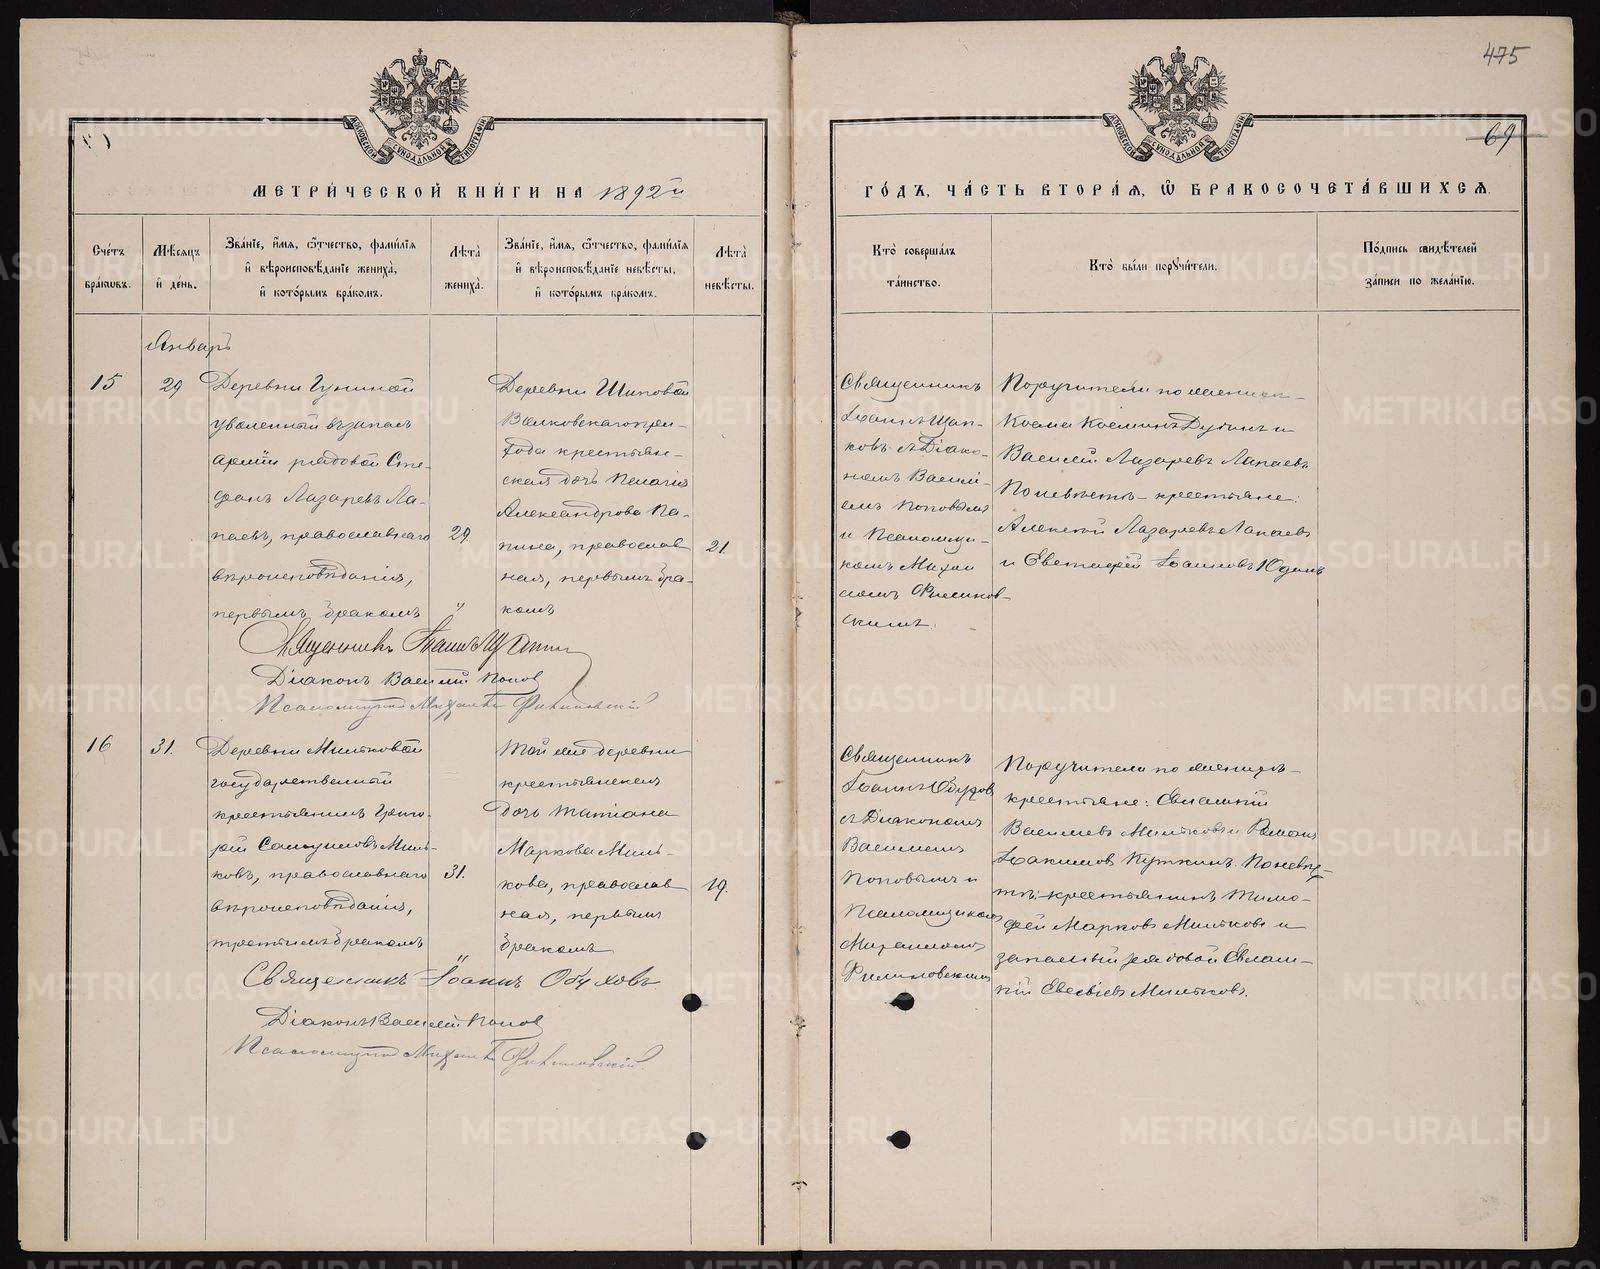 475
69
МОСКОВСКОЙ СУНОДАЛЬНОЙ ТИПОГРАФІИ
МОСКОВСКОЙ СУНОДАЛЬНОЙ ТИПОГРАФІИ
МЕТРИЧЕСКОЙ КНИГИ НА 1892й
ГОДЪ, ЧАСТЬ ВТОРАЯ, Ѿ БРАКОСОЧЕТАВШИХСЯ.
Счетъ
браковъ.
Мѣсяцъ
и день.
Званіе, имя, ѿтчество, фамилія
и вѣроисповѣданіе жениха,
и которымъ бракомъ.
Лѣта
жениха.
Званіе, имя, ѿтчество, фамилія
и вѣроисповѣданіе невѣсты,
и которымъ бракомъ.
Лѣта
невѣсты.
Кто совершалъ
таинство.
Кто были поручители.
Подпись свидѣтелей
записи по желанію.
Январь
15
29
Деревни Гуниной
уволенный въ запасъ
арміи рядовой Сте-
фанъ Лазаревъ Ла-
паевъ, православнаго
вѣроисповѣданія,
первымъ бракомъ
29
Деревни Шиповой
Волковскаго при-
хода крестьян-
ская дочь Пелагія
Александрова Па-
пина, православ
ная, первымъ бра-
комъ
21.
Священникъ
Іоаннъ
ковъ съ Діако-
номъ Васили-
емъ Поповымъ
и Псаломщи-
комъ Михаи
ломъ Филинов-
скимъ.
Поручители по женихѣ
Косма Косминъ и
Василій Лазаревъ Лапаевъ
По невѣстѣ - крестьяне:
Алексій Лазаревъ Лапаевъ
и Евстафій Іоанновъ Юдинъ
Священникъ Іоаннъ
Діаконъ Василій Попов
Псаломщикъ Михаилъ Филиновскій
16
31.
Деревни Мильковой
государственный
крестьянинъ Григо-
рій Самуиловъ Миль-
ковъ, православнаго
вѣроисповѣданія,
третьимъ бракомъ
31.
Той же деревни
крестьянская
дочь Татіана
Маркова Миль-
кова, православ
ная, первымъ
бракомъ
19.
Священникъ
Іоаннъ Обухов
съ Діакономъ
Василіемъ
Поповымъ и
Псаломщикомъ
Михаиломъ
Филиновскимъ
Поручители по женихѣ
крестьяне: Евлампій
Васильевъ Мильковъ и Романъ
Іоакимов Путкинъ. По невѣ-
стѣ: крестьянинъ Тимо-
фей Марковъ Мильковъ и
запасный рядовой Евлам-
пій Евсѣевъ Мильковъ.
Священникъ Іоаннъ Обуховъ
Діаконъ Василій Попов
Псаломщикъ Михаилъ Филиновскій